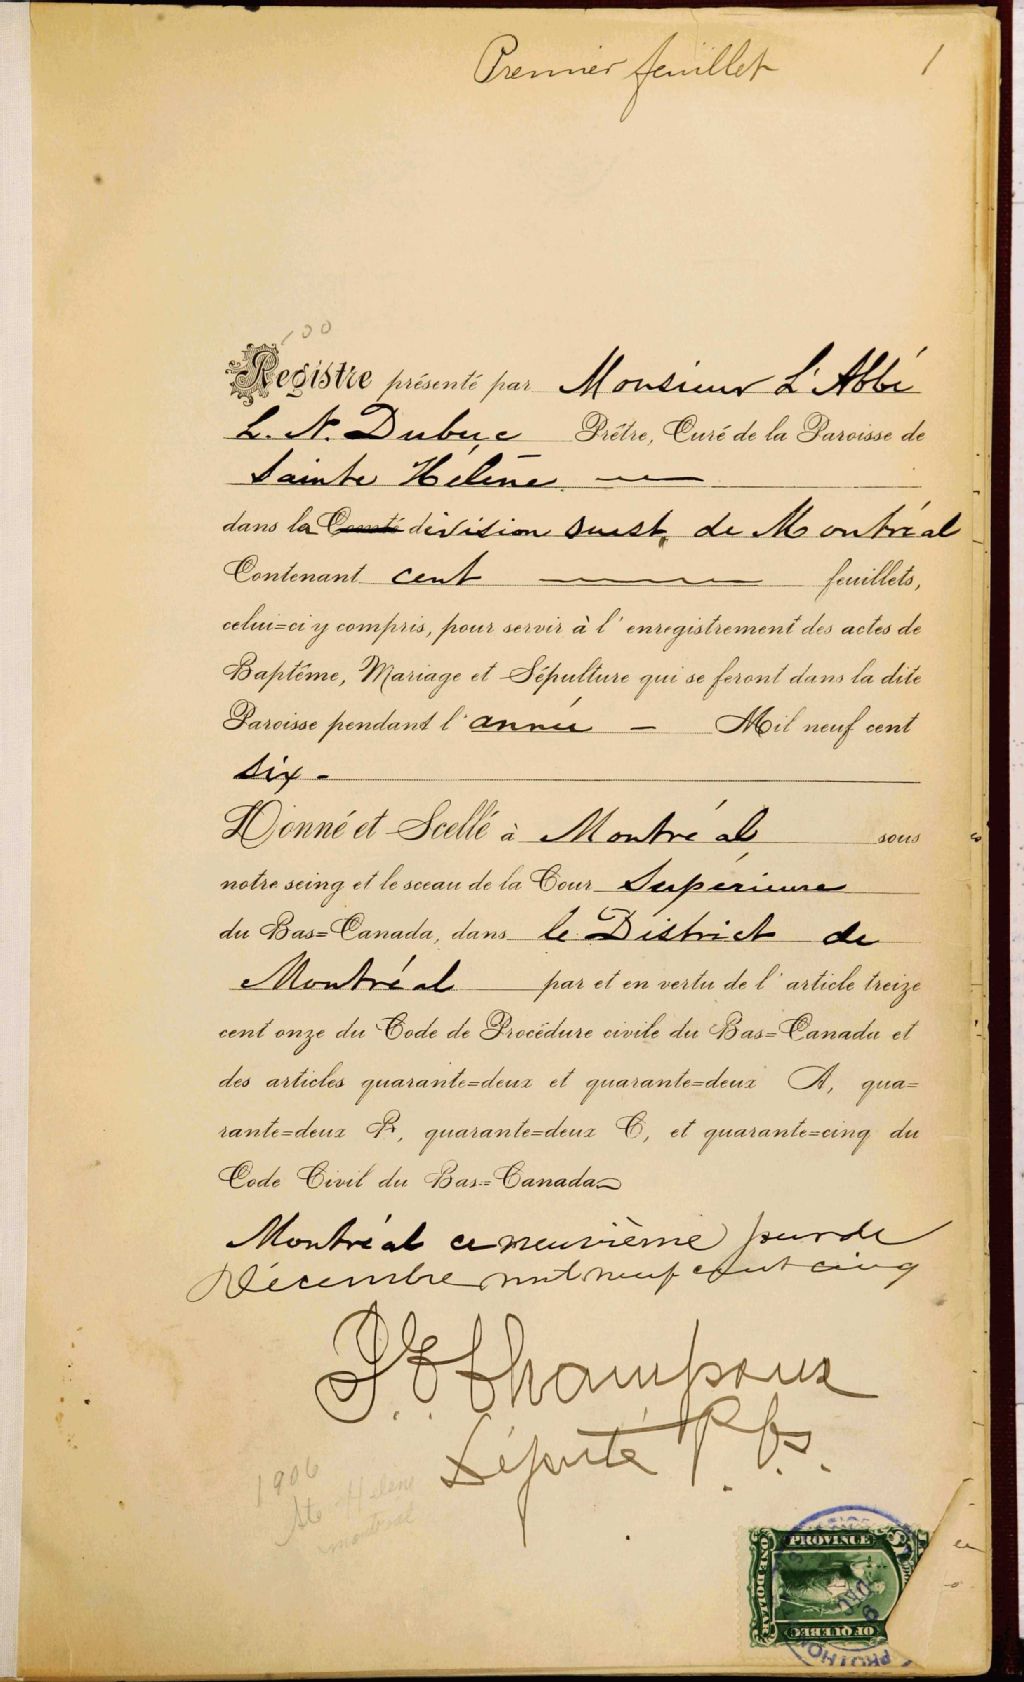 Premier feuillet 1
100
Registre présenté par Monsieur L'Abbé
L. N. Dubuc Prêtre, Curé de la Paroisse de
Sainte Hélène
dans la Comté division ouest de Montréal
Contenant cent feuillets,
celui=ci y compris, pour servir à l'enregistrement des actes de
Baptême, Mariage et Sépulture qui se feront dans la dite
Paroisse pendant l'année – Mil neuf cent
six –
Donné et Scellé à Montréal sous
notre seing et le sceau de la Cour Supérieure
du Bas=Canada, dans le District de
Montréal par et en vertu de l'article treize
cent onze du Code de Procédure civile du Bas=Canada et
des articles quarante=deux et quarante=deux A, qua=
rante=deux B, quarante=deux C, et quarante=cinq du
Code Civil du Bas=Canada
Montréal ce neuvième jour de
Décembre mil neuf cent cinq
J. E. Champoux
Député P. C. S.
1906
Ste Hélène
montreal
PROVINCE
ONE DOLLAR
DEC 9
OF QUEBEC
PROTHO